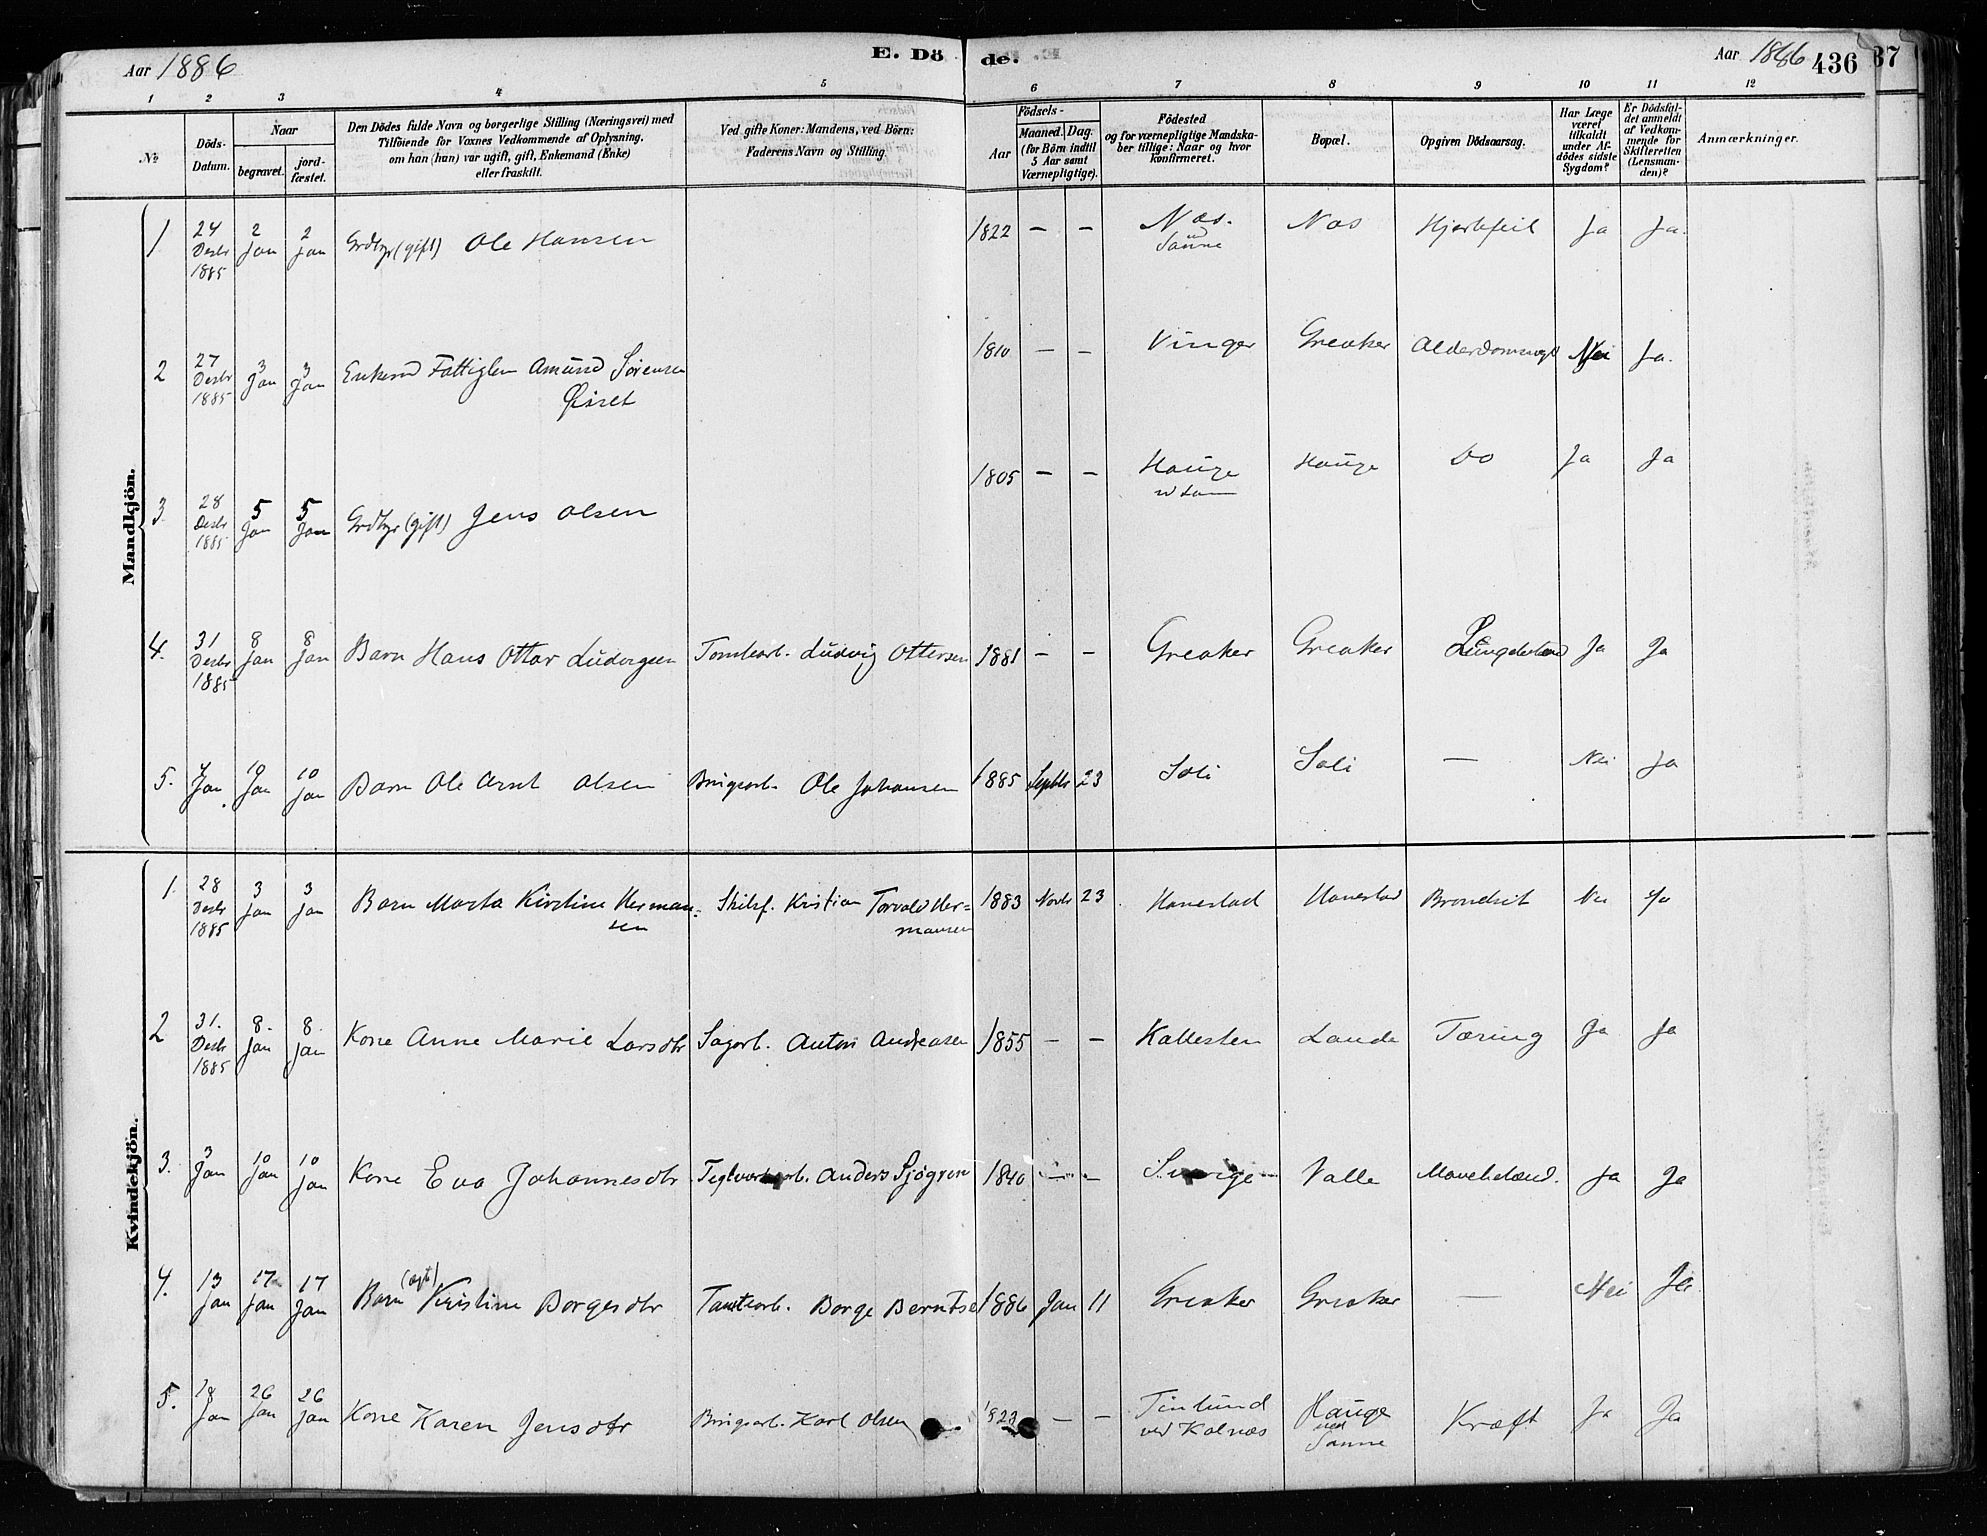 Aar 1886
E. Dö
de.
Aar 1886
436
37
1 2 3 4 5 6 7 8 9 10 11 12
No
Döds-Datum.
Naar
begravet.
jord-fæstet.
Den Dödes fulde Navn og borgerlige Stilling (Næringsvei) med
Tilföiende for Voxnes Vedkommende af Oplysning.
om han (hun) var ugift, gift, Enkemand (Enke)
eller fraskilt.
Ved gifte Koner: Mandens, ved Börn:
Faderens Navn og Stilling.
Aar
Födsels-
Maaned. Dag.
(for Börn indtil
5 Aar samt
Værnepligtige).
Födested
og for værnepligtige Mandska-
ber tillige: Naar og hvor
konfirmeret.
Bopæl.
Opgiven Dödsaarsag.
Har Læge
været
tilkaldt
under Af-
dödes sidste
Sygdom?
Er Dödsfal-
det anmeldt
af Vedkom-
mende for
Skifteretten
(Lensman-
den)?
Anmærkninger.
Mandkjön.
1 24 Desbr 1885 2 Jan 2 Jan Grdbgr (gift) Ole Hansen 1822 — — Næs. Sanne Næs Hjertefeil Ja Ja.
2 27 Desbr 1885 3 Jan 3 Jan Enkemd Fattiglem Amund Sörensen 1810 — — Vinger Greaker Nei Ja.
3 28 Desbr 1885 5 Jan 5 Jan Grdbgr (gift) Jens Olsen 1805 — — Hauge Hauge Do Ja Ja
4. 31 Desbr 1885 8 Jan 8 Jan Barn Hans Ottar Ludvigsen Tomtearb. Ludvig Ottersen 1881 — — Greaker Greaker Ja Ja
5. Jan 10 Jan 10 Jan Barn Ole Arnt Olsen Brugsarb. Ole Johansen 1885 Septbr 23 Soli Soli — Nei Ja
Kvindekjön.
1. 28 Desbr 1885 3 Jan 3 Jan Barn Marta Kirstine Herman=
sen Kristian Torvald Her=
mansen 1883 Novbr 23 Hanestad Hanestad Nei Ja
2 31. Desbr 1885 8. Jan 8. Jan Kone Anne Marie Larsdtr Sagarb. Anton Andreasen 1855 — — Kallesten Lande Tæring Ja Ja
3. 3 Jan 10 Jan 10 Jan Kone Eva Johannesdtr Teglværksarb. Anders Sjögren 1840 — — Sverige Valle Ja Ja
4. 13 Jan 17 Jan 17 Jan Barn Kristine Borgesdtr Tomtearb. Borge Berntsen 1886 Jan 11 Greaker Greaker — Nei Ja
5. 18 Jan 26 Jan 26 Jan Kone Karen Jensdtr Brugsarb. Karl Olsen 1823 — — Tinlund
ved Kalnæs Hauge
ved
Sanne Kræft Ja Ja